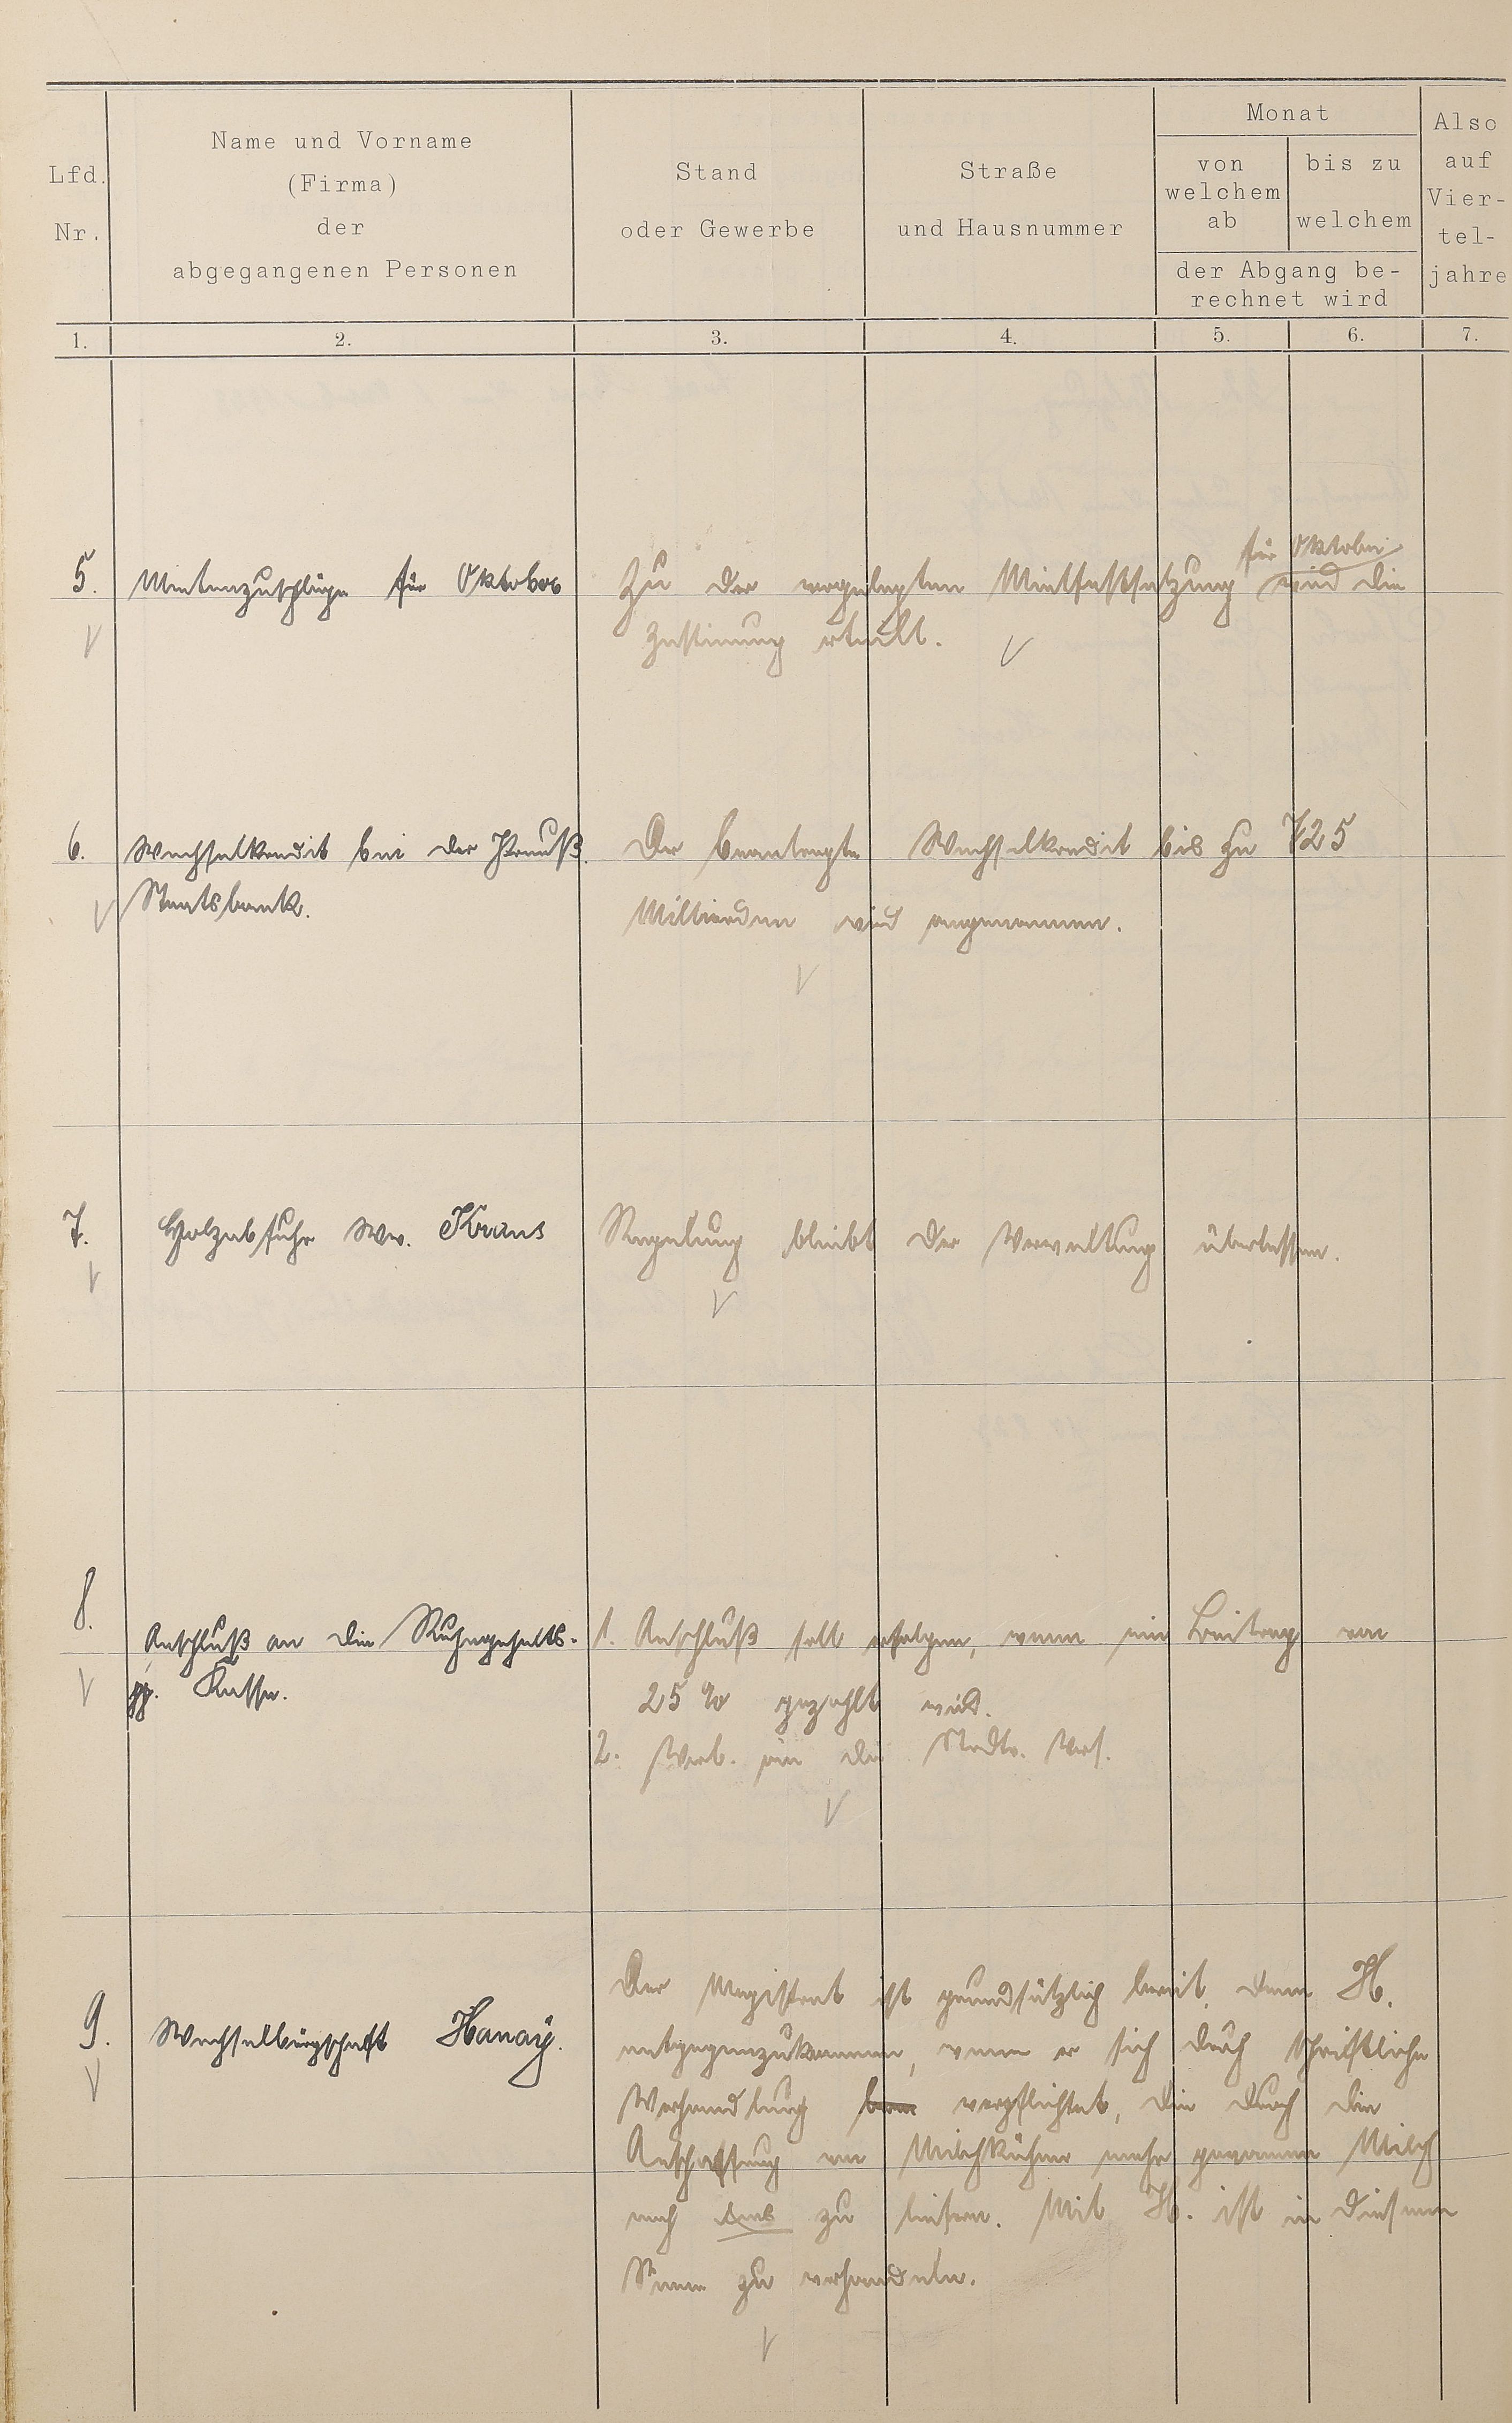 Lfd. Nr.
Name und Vorname
(Firma)
der
abgegangenen Personen
Stand
oder Gewerbe
Straße
und Hausnummer
Monat
von welchem ab
bis zu welchem
der Abgang be-
rechnet wird
Also auf Vier-tel-jahre
1. 2. 3. 4. 5. 6. 7.
5. Mietenzuschläge für Oktober
Zu der vorgelegten Mietfestsetzung für Oktober wird die
Zustimmung erteilt.
6. Wechselkredit bei der Preuß.
Staatsbank.
Der beantragte Wechselkredit bis zu 725
Milliarden wird angenommen.
7. Holzabfuhr Ww. Kraus
Regelung bleibt der Verwaltung überlassen.
8. Anschluß an die Ruhegehalts-
pp. Kasse.
1. Anschluß soll erfolgen, wenn ein Beitrag von
25 % gezahlt wird.
2. Vorl. an die Stadtv. Vers.
9. Wechselbürgschaft Hanay.
Der Magistrat ist grundsätzlich bereit, dem H.
entgegenzukommen, wenn er sich durch schriftliche
Verhandlung verpflichtet, die durch die
Anschaffung von Milchkühen mehr gewonnene Milch
nach zu liefern. Mit H. ist in diesem
Sinne zu verhandeln.